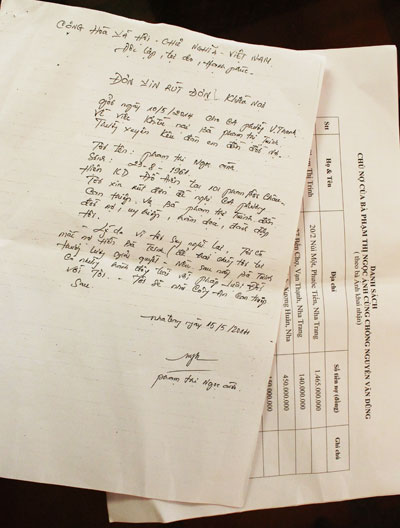 CỘNG HÒA XÃ HỘI CHỦ NGHĨA VIỆT NAM
Độc lập, tự do, Hạnh phúc
ĐƠN XIN RÚT ĐƠN Khiếu Nại
gởi ngày 10/5/2014 cho CA phường V.Thạnh
Về việc Khiếu nại Bà phạm thị Trinh
Thường xuyên kêu đàn em đến đòi nợ.
Tôi tên: phạm thị Ngọc Ánh
Sinh: 1961
Hiện KD tại 101 phan Bội Châu
Tôi xin rút đơn đề nghị CA phường
can thiệp Bà phạm thị Trinh đến
đòi nợ, uy hiếp, đánh đập
tôi.
Lý do vì tôi suy nghĩ lại. Tôi có
mắc nợ tiền Bà Trinh, để hai chị tôi tự
thương lượng giải quyết. Nếu sau này Bà Trinh
có những hành động trái với pháp luật đối
với Tôi. Tôi sẽ nhờ Công An can thiệp
sau.
nha trang ngày 15/5/2014
phạm thị Ngọc Ánh
DANH SÁCH
CHỦ NỢ CỦA BÀ PHẠM THỊ NGỌC ÁNH CÙNG CHỒNG NGUYỄN VĂN DŨNG
( theo bà Ánh khai nhận)
Stt Họ & Tên Địa chỉ Số tiền nợ (đồng) Ghi chú
Thị Trinh 20/2 Núi Một, Phước Tiến, Nha Trang 1.465.000.000
Chợ, Vạn Thạnh, Nha Trang 140.000.000
Xương Huân, Nha 450.000.000